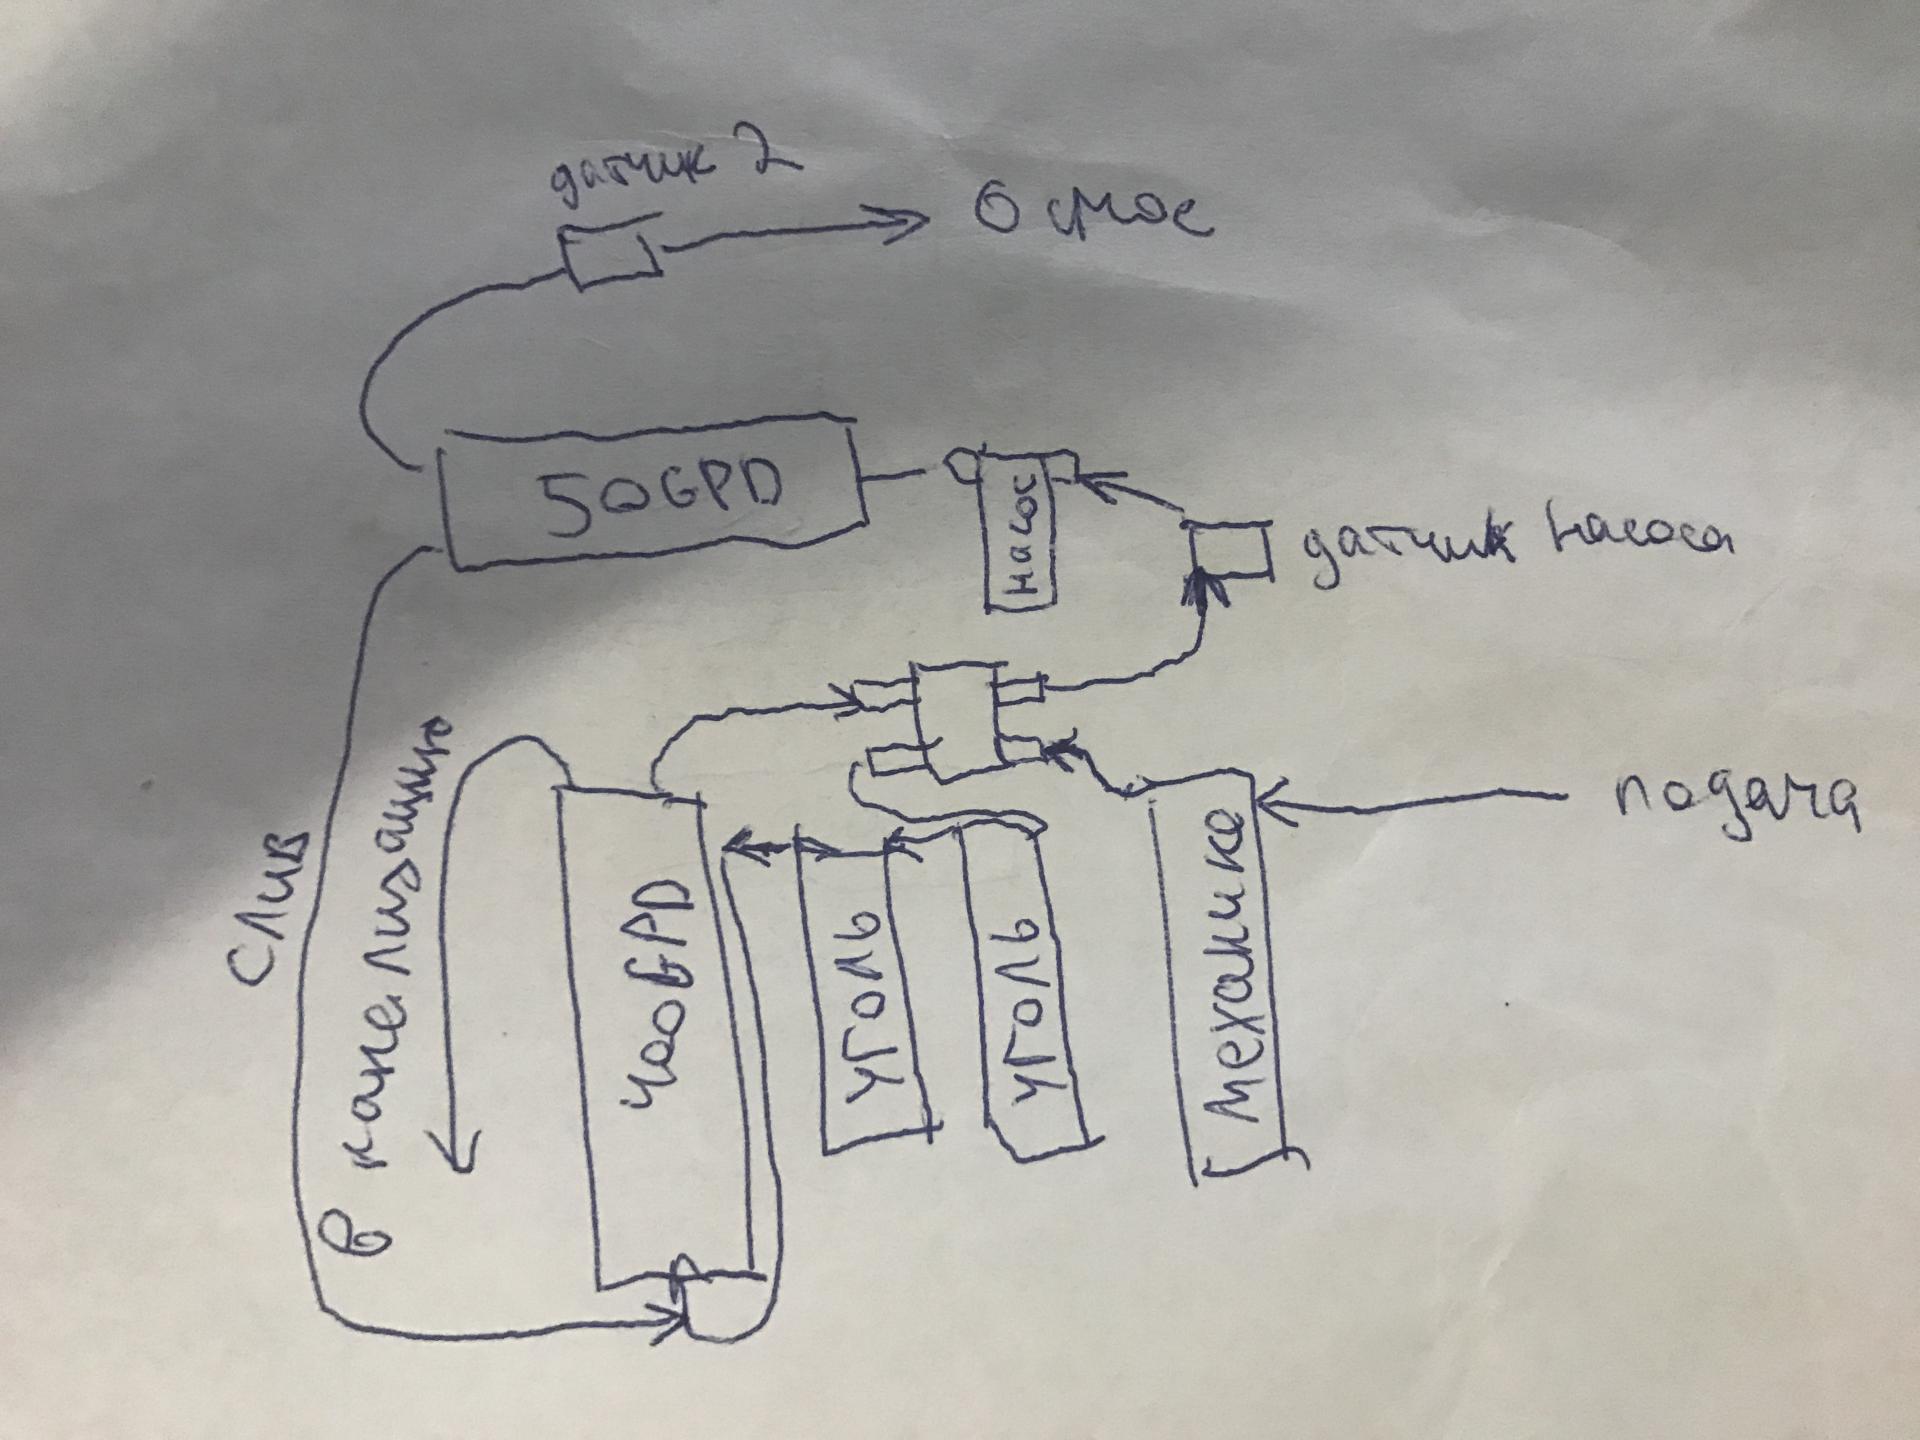 датчик 2
Осмос
50GPD
насос
датчик насоса
подача
слив
в канелизацию
400GPD
уголь
уголь
механика